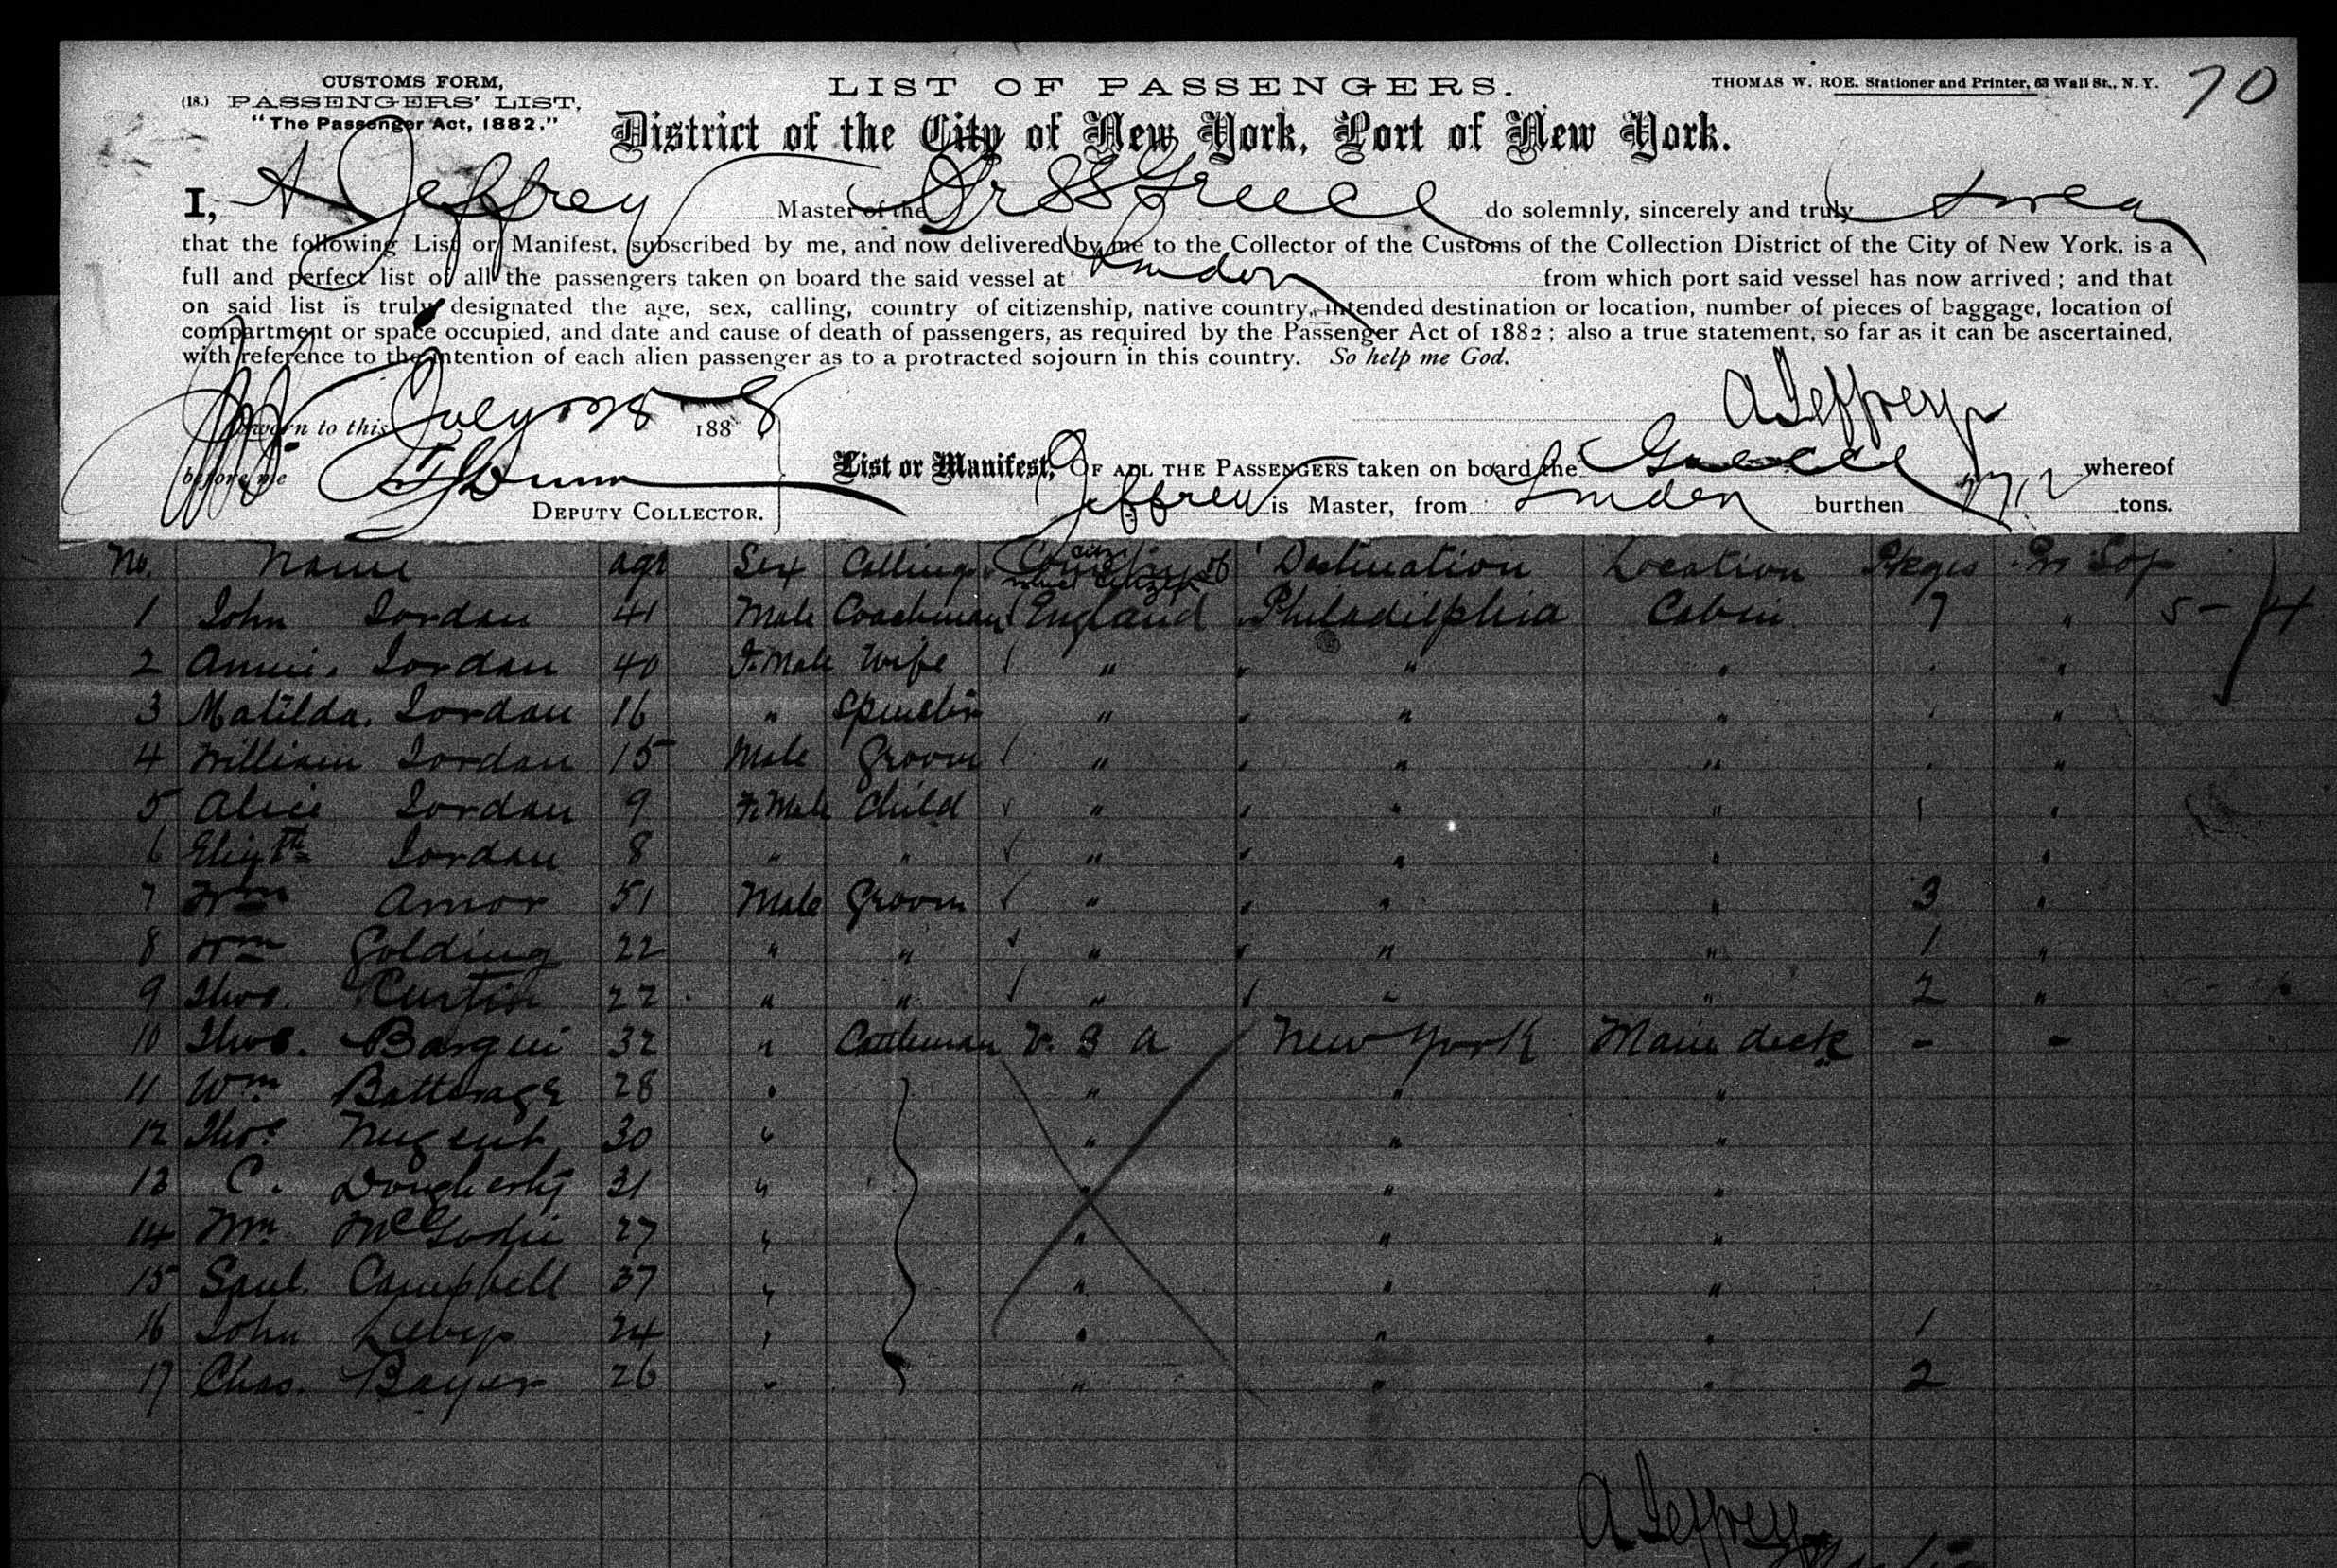 CUSTOMS FORM,
(18.) PASSENGERS' LIST,
"The Passenger Act, 1882."
LIST OF PASSENGERS.
THOMAS W. ROE. Stationer and Printer, 63 Wall St., N. Y.
70
District of the City of New York, Port of New York.
I, A Jeffrey Master of the Br SS Greece do solemnly, sincerely and truly swear
that the following List or Manifest, subscribed by me, and now delivered by me to the Collector of the Customs of the Collection District of the City of New York, is a
full and perfect list of all the passengers taken on board the said vessel at London from which port said vessel has now arrived; and that
on said list is truly designated the age, sex, calling, country of citizenship, native country, intended destination or location, number of pieces of baggage, location of
compartment or space occupied, and date and cause of death of passengers, as required by the Passenger Act of 1882; also a true statement, so far as it can be ascertained,
with reference to the intention of each alien passenger as to a protracted sojourn in this country. So help me God.
A Jeffrey
Sworn to this July 1888
before me
DEPUTY COLLECTOR.
List or Manifest, OF ALL THE PASSENGERS taken on board the Greece whereof
Jeffrey is Master, from London burthen tons.
No. Name age Sex Calling Country of Destination Location Pkges
1 John Jordan 41 Male Coachman England Philadelphia Cabin 7 "
2 Annie Jordan 40 F. Male Wife " " " "
3 Matilda Jordan 16 " Spinster " " " "
4 William Jordan 15 Male Groom " " " "
5 Alice Jordan 9 F. Male Child " " " "
6 Elizth Jordan 8 " " " " " "
7 Wm Amor 51 Male Groom " " " 3 "
8 Wm Golding 22 " " " " " 1 "
9 Thos. Curtin 22 " " " " " 2 "
10 Thos. 32 " Cattleman U. S A New York Main deck - -
11 Wm 28 " " " "
12 Thos Nugent 30 " " " "
13 C. Dougherty 31 " " " "
14 Wm 27 " " " "
15 Saml. Campbell 37 " " " "
16 John 24 " " " " 1
17 Chas. Bayer 26 " " " " 2
A Jeffrey